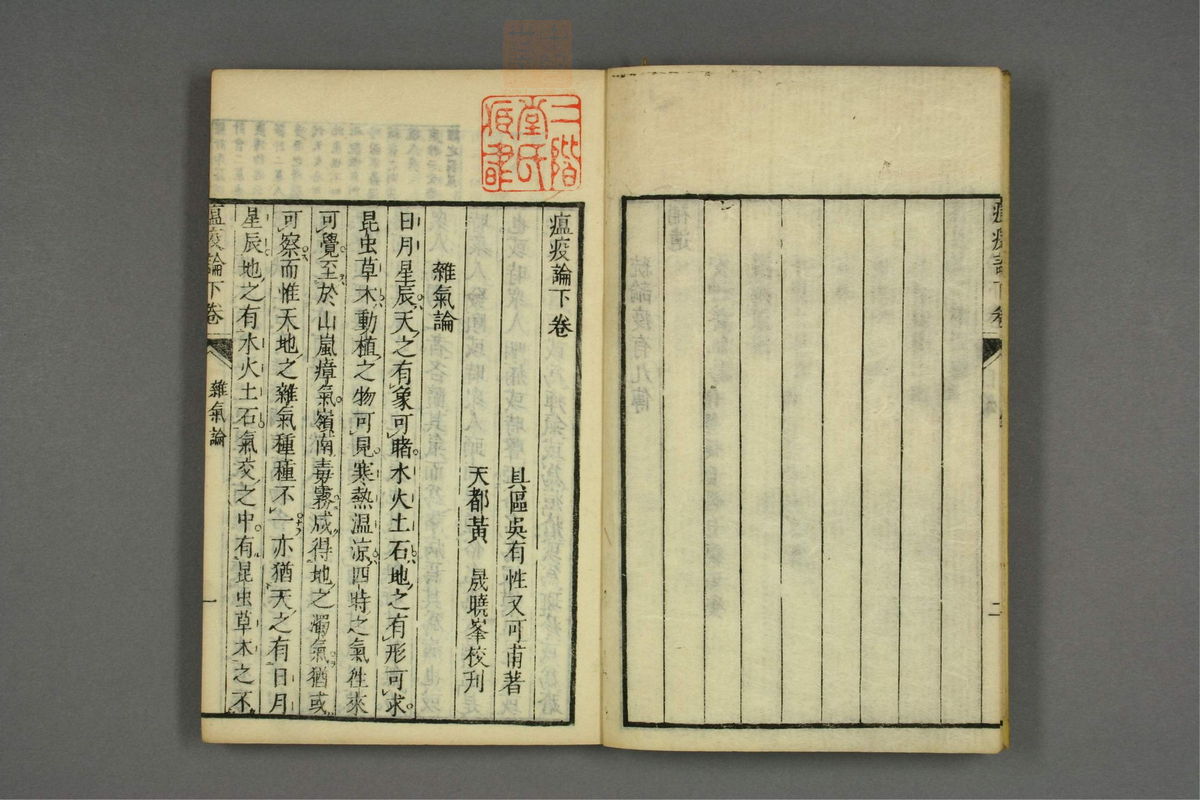 瘟疫論下卷
二
二階
堂氏
瘟疫論下卷
具區吳有性又可甫著
天都黃 晟曉峯校刊
雜氣論
日月星辰天之有象可睹水火土石地之有形可求
昆虫草木動植之物可見寒熱温凉四時之氣徃來
可覺至於山嵐瘴氣嶺南毒霧咸得地之濁氣猶或
可察而惟天地之雜氣種種不一亦猶天之有日月
星辰地之有水火土石氣交之中有昆虫草木之不
瘟疫論下卷
雜氣論
一